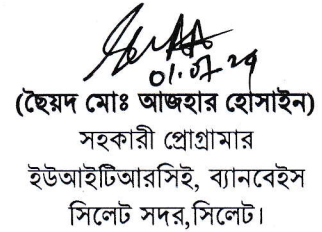 01.07.29
(ছৈয়দ মোঃ আজহার হোসাইন)
সহকারী প্রোগ্রামার
ইউআইটিআরসিই, ব্যানবেইস
সিলেট সদর,সিলেট।